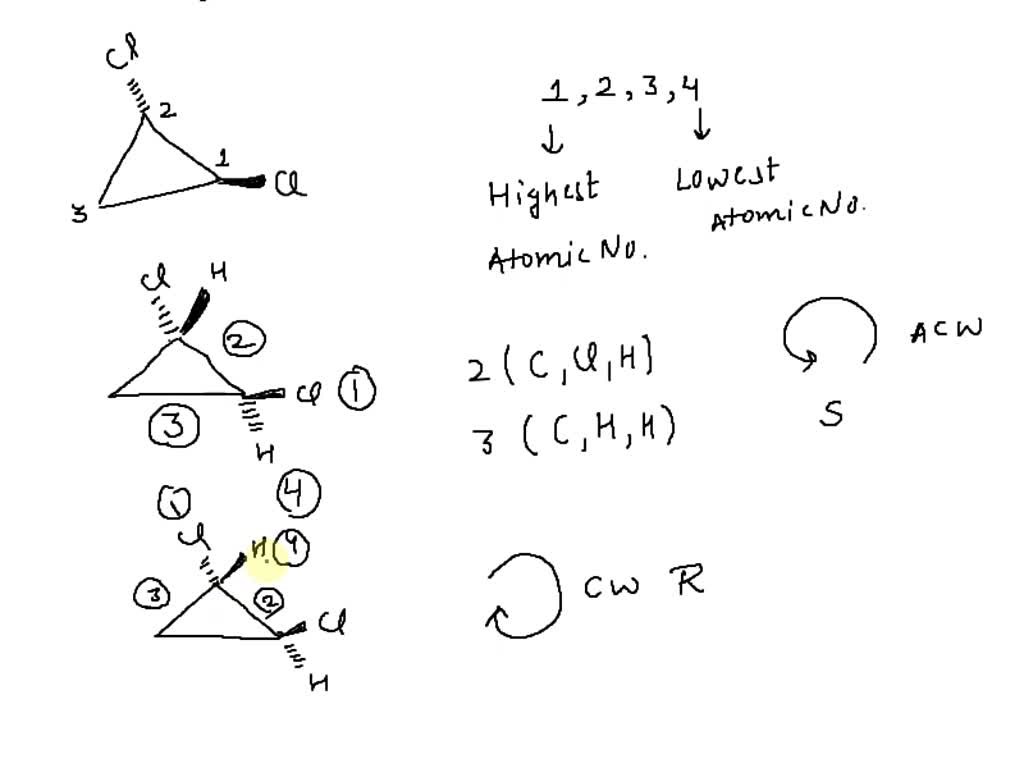 Cl
2
1
Cl
3
1, 2, 3, 4
Highest
Atomic No.
Lowest
Atomic No.
Cl H
2
Cl 1
3
H
4
2 ( C, Cl, H )
3 ( C, H, H )
ACW
S
1
Cl
H 4
3
2
Cl
H
CW R